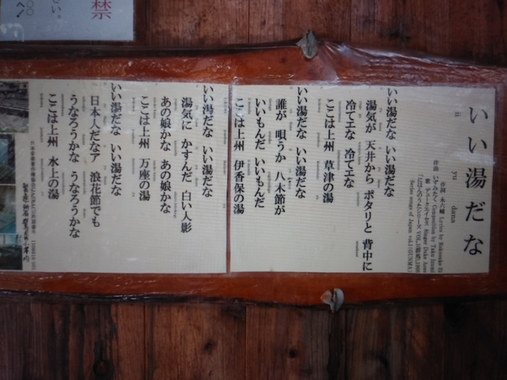 いい湯だな
ii yu dana
いい湯だな いい湯だな
湯気が 天井から ポタリと 背中に
冷てエな 冷てエな
ここは上州 草津の湯
いい湯だな いい湯だな
誰が 唄うか 八木節が
いいもんだ いいもんだ
ここは上州 伊香保の湯
いい湯だな いい湯だな
湯気に かすんだ 白い人影
あの娘かな あの娘かな
ここは上州 万座の湯
いい湯だな いい湯だな
日本人だなア 浪花節でも
うなろうかな うなろうかな
ここは上州 水上の湯
禁